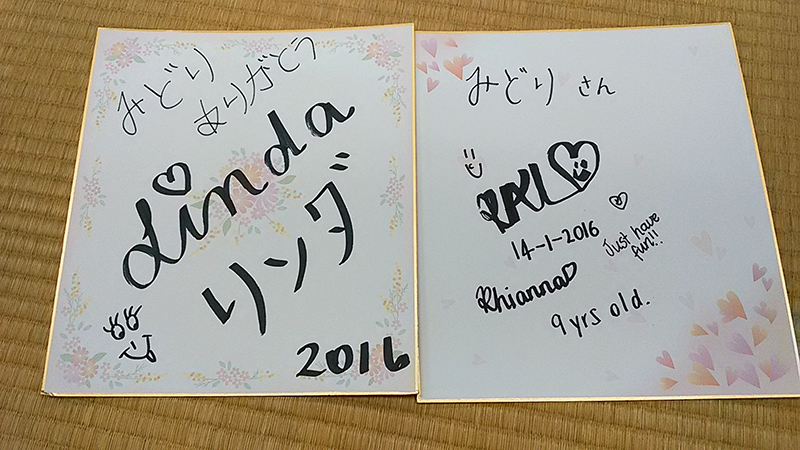 みどり
ありがとう
Linda
リンダ
2016
みどりさん
14-1-2016
Just have
fun!!
Rhianna
9 yrs old.